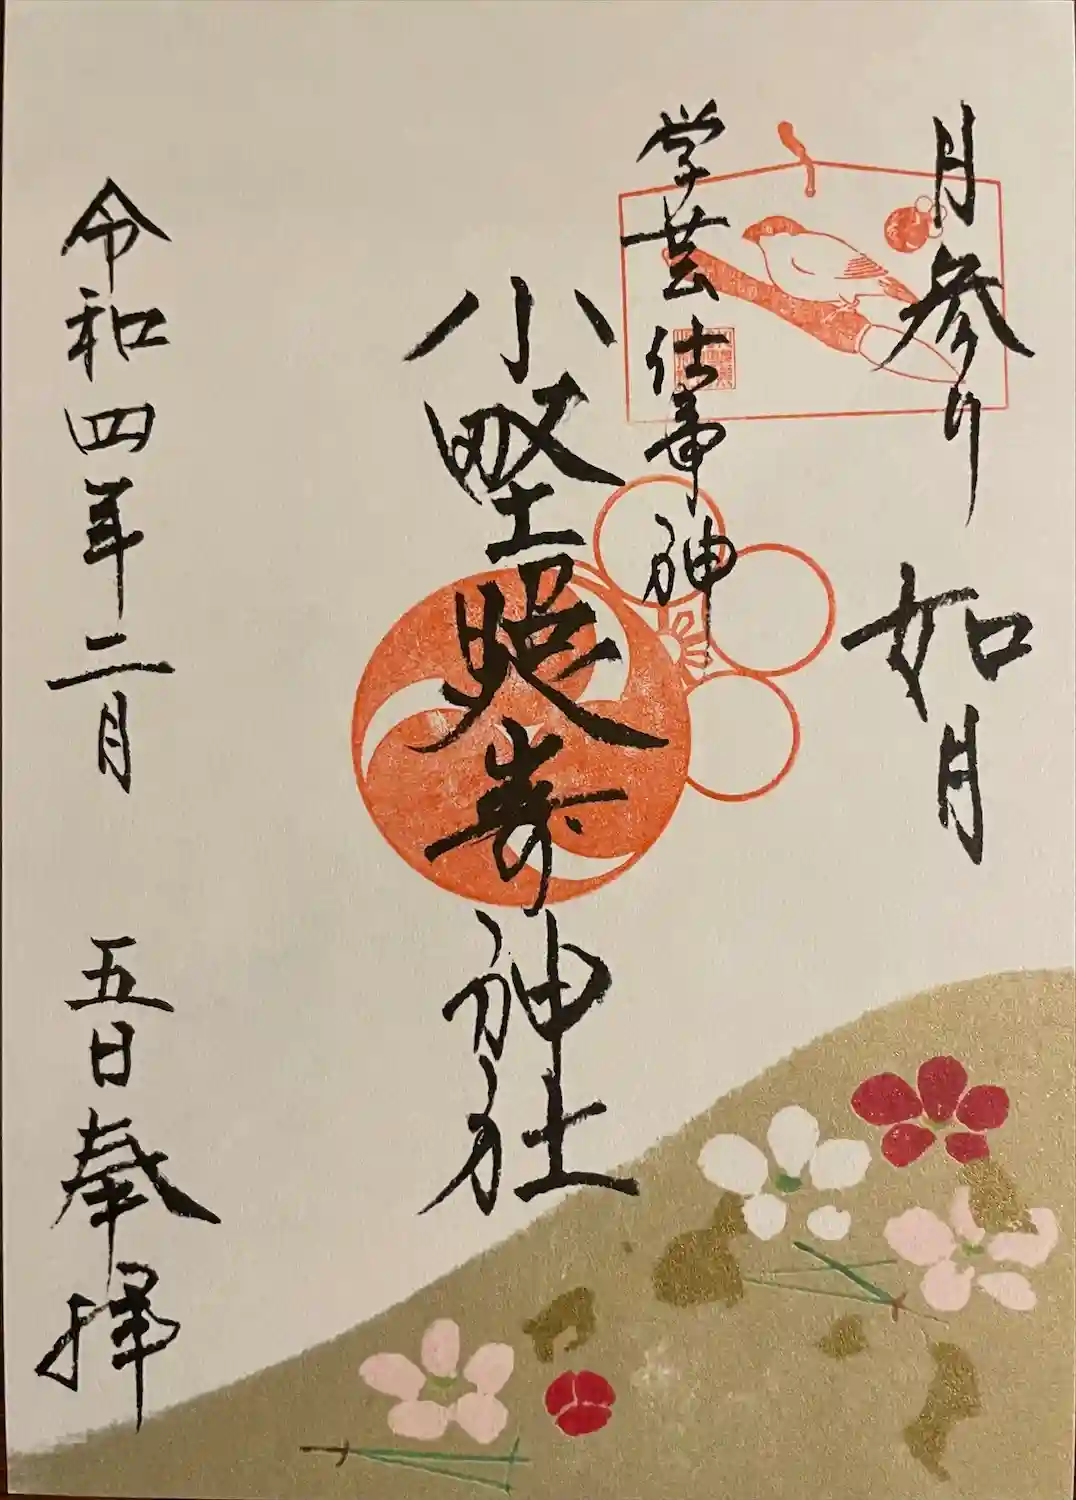 月参り 如月
学芸仕事神
小野照崎神社
令和四年二月 五日 奉拝